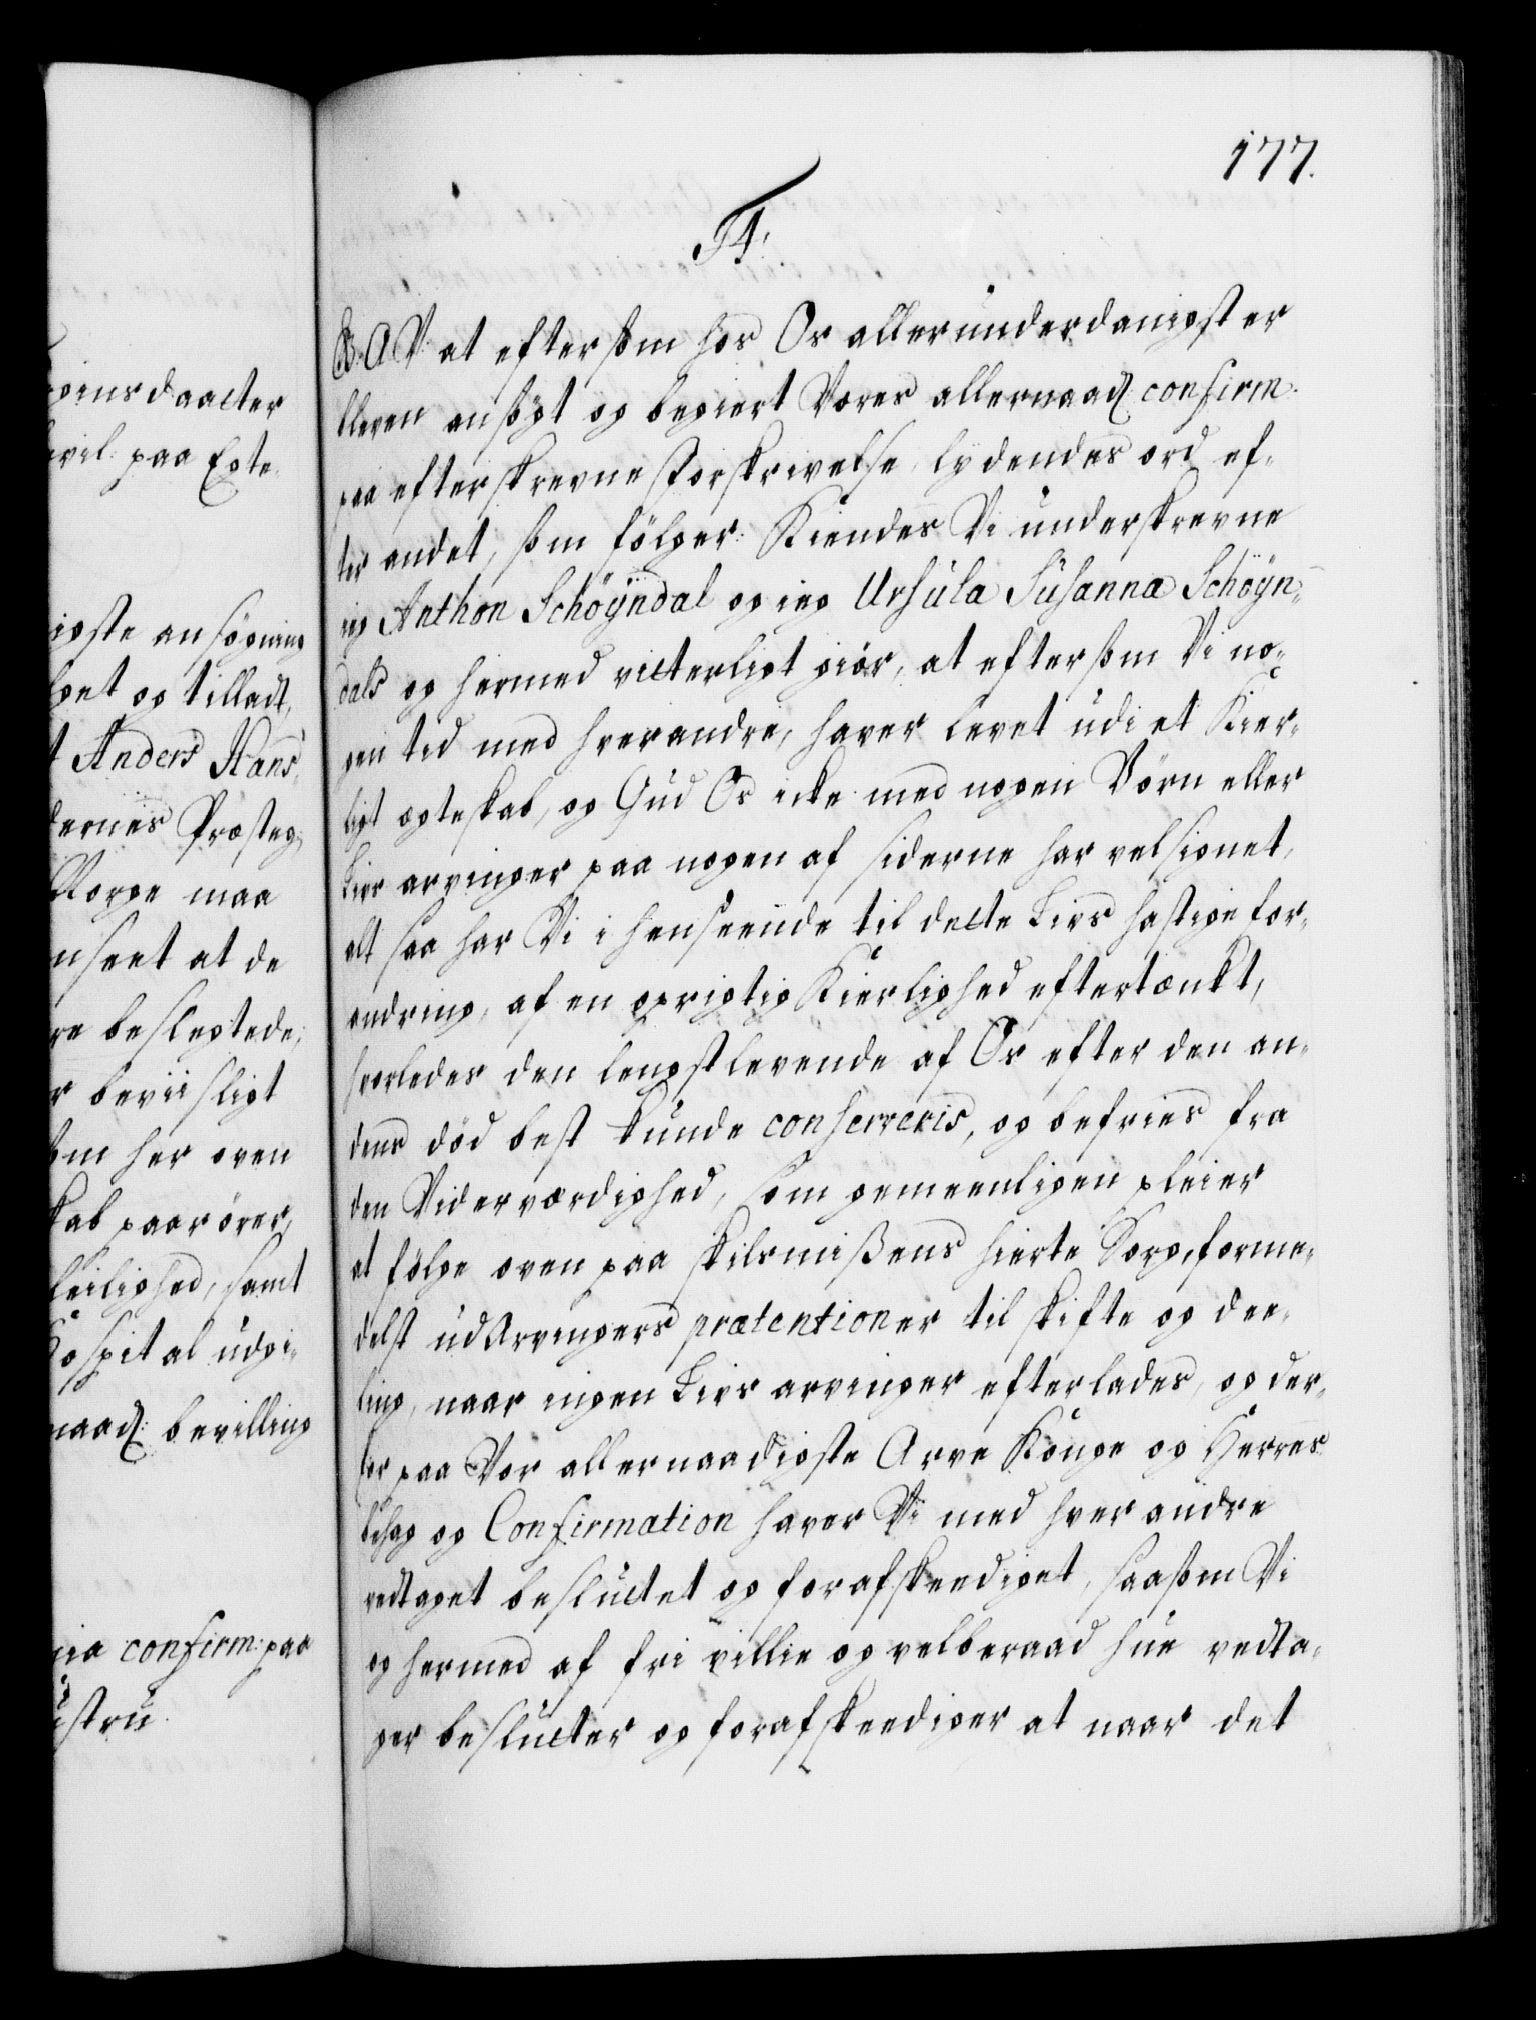 177.
F4.
G. A V: at eftersom hos Os allerunderdanigst er
bleven ansögt og begiert Vores allernaad: confirm:
paa efterskrevne Forskrivelse, lydendes ord ef-
ter andet, som fölger: Kiendes Vi underskrevne
ieg Anthon Schöÿndal og ieg Ursula Susanna Schöÿn-
dals og hermed vitterligt giör, at eftersom Vi no-
gen tid med hverandre, haver levet udi et Kier-
ligt ægteskab, og Gud Os icke med nogen Börn eller
Livs arvinger paa nogen af siderne har velsignet,
alt saa har Vi i henseende til dette Livs hastige for-
andring, af en oprigtig Kierlighed eftertænkt,
hvorledes den lengstlevende af Os efter den an-
dens död best kunde conserveris, og befries fra
den Viderværdighed, som gemeenligen pleier
at fölge oven paa skilsmißens hierte Sorg, forme-
delst udArvingers prætentioner til skifte og dee-
ling, naar ingen Livs arvinger efterlades, og der-
for paa Vor allernaadigste Arve Konge og Herres
behag og Confirmation haver Vi med hver andre
vedtaget besluttet og forafskeediget, saasom Vi
og hermed af fri villie og velberaad hue vedta-
ger beslutter og forafskeediger at naar det
gensdaatter
evil: paa Egte-
igste ansögning
get og tilladt,
t Anders Hans-
dernes Præsteg:
Norge maa
nseet at de
re beslegtede,
r beviisligt
som her oven
skab paarörer,
leilighed, samt
Hospital udgi-
naad: bevilling
nia confirm: paa
ustru.